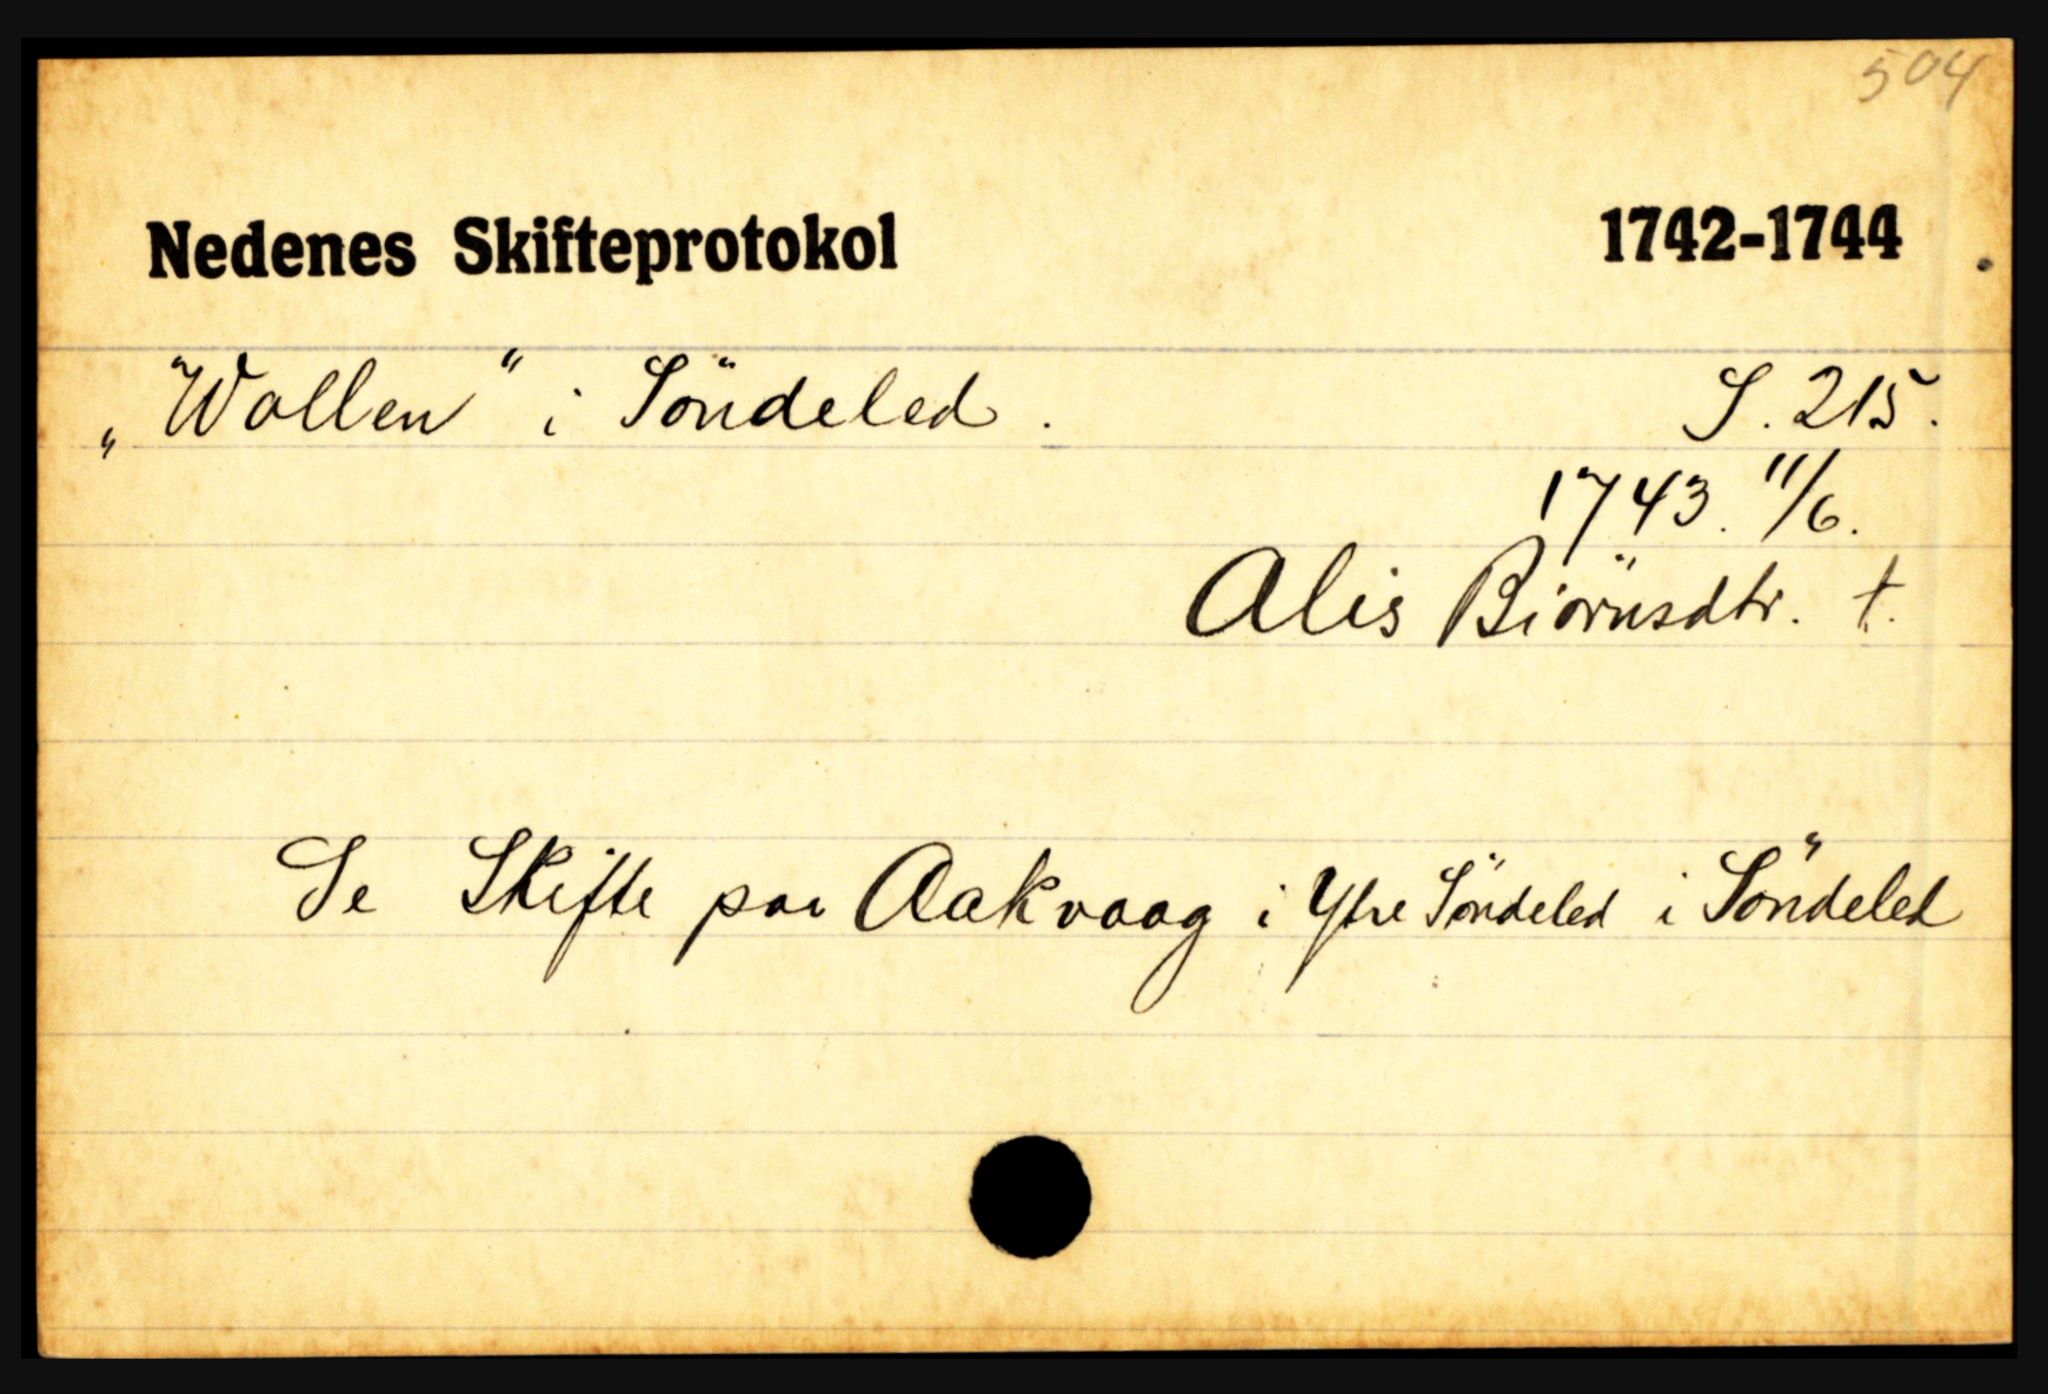 504
Nedenes Skifteprotokol 1742-1744
„Wollen" i Söndeled. S. 215.
1743. 11/6.
Alis Biörnsdtr. †.
Se Skifte paa Aakvaag i Ytre Söndeled i Söndeled